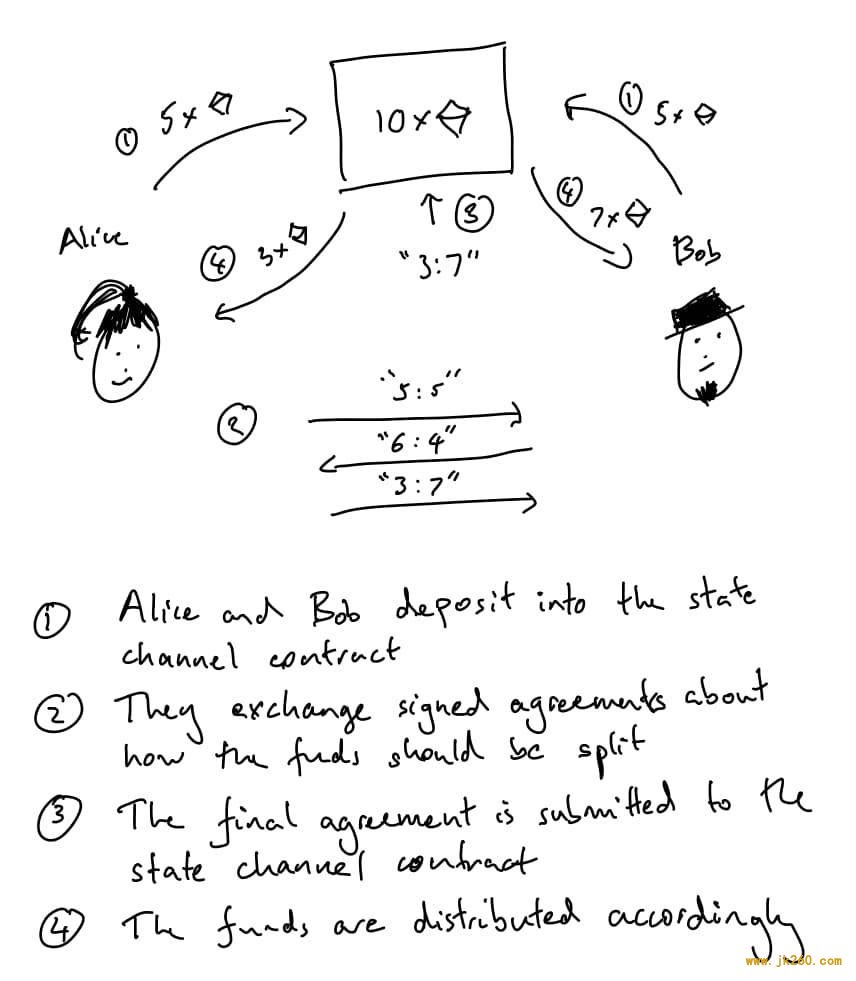 ① 5x
10x
① 5x
Alice
④ 3x
↑ ③
"3:7"
④ 7x
Bob
②
"5:5"
"6:4"
"3:7"
① Alice and Bob deposit into the state
channel contract
② They exchange signed agreements about
how the funds should be split
③ The final agreement is submitted to the
state channel contract
④ The funds are distributed accordingly
www.jk260.com